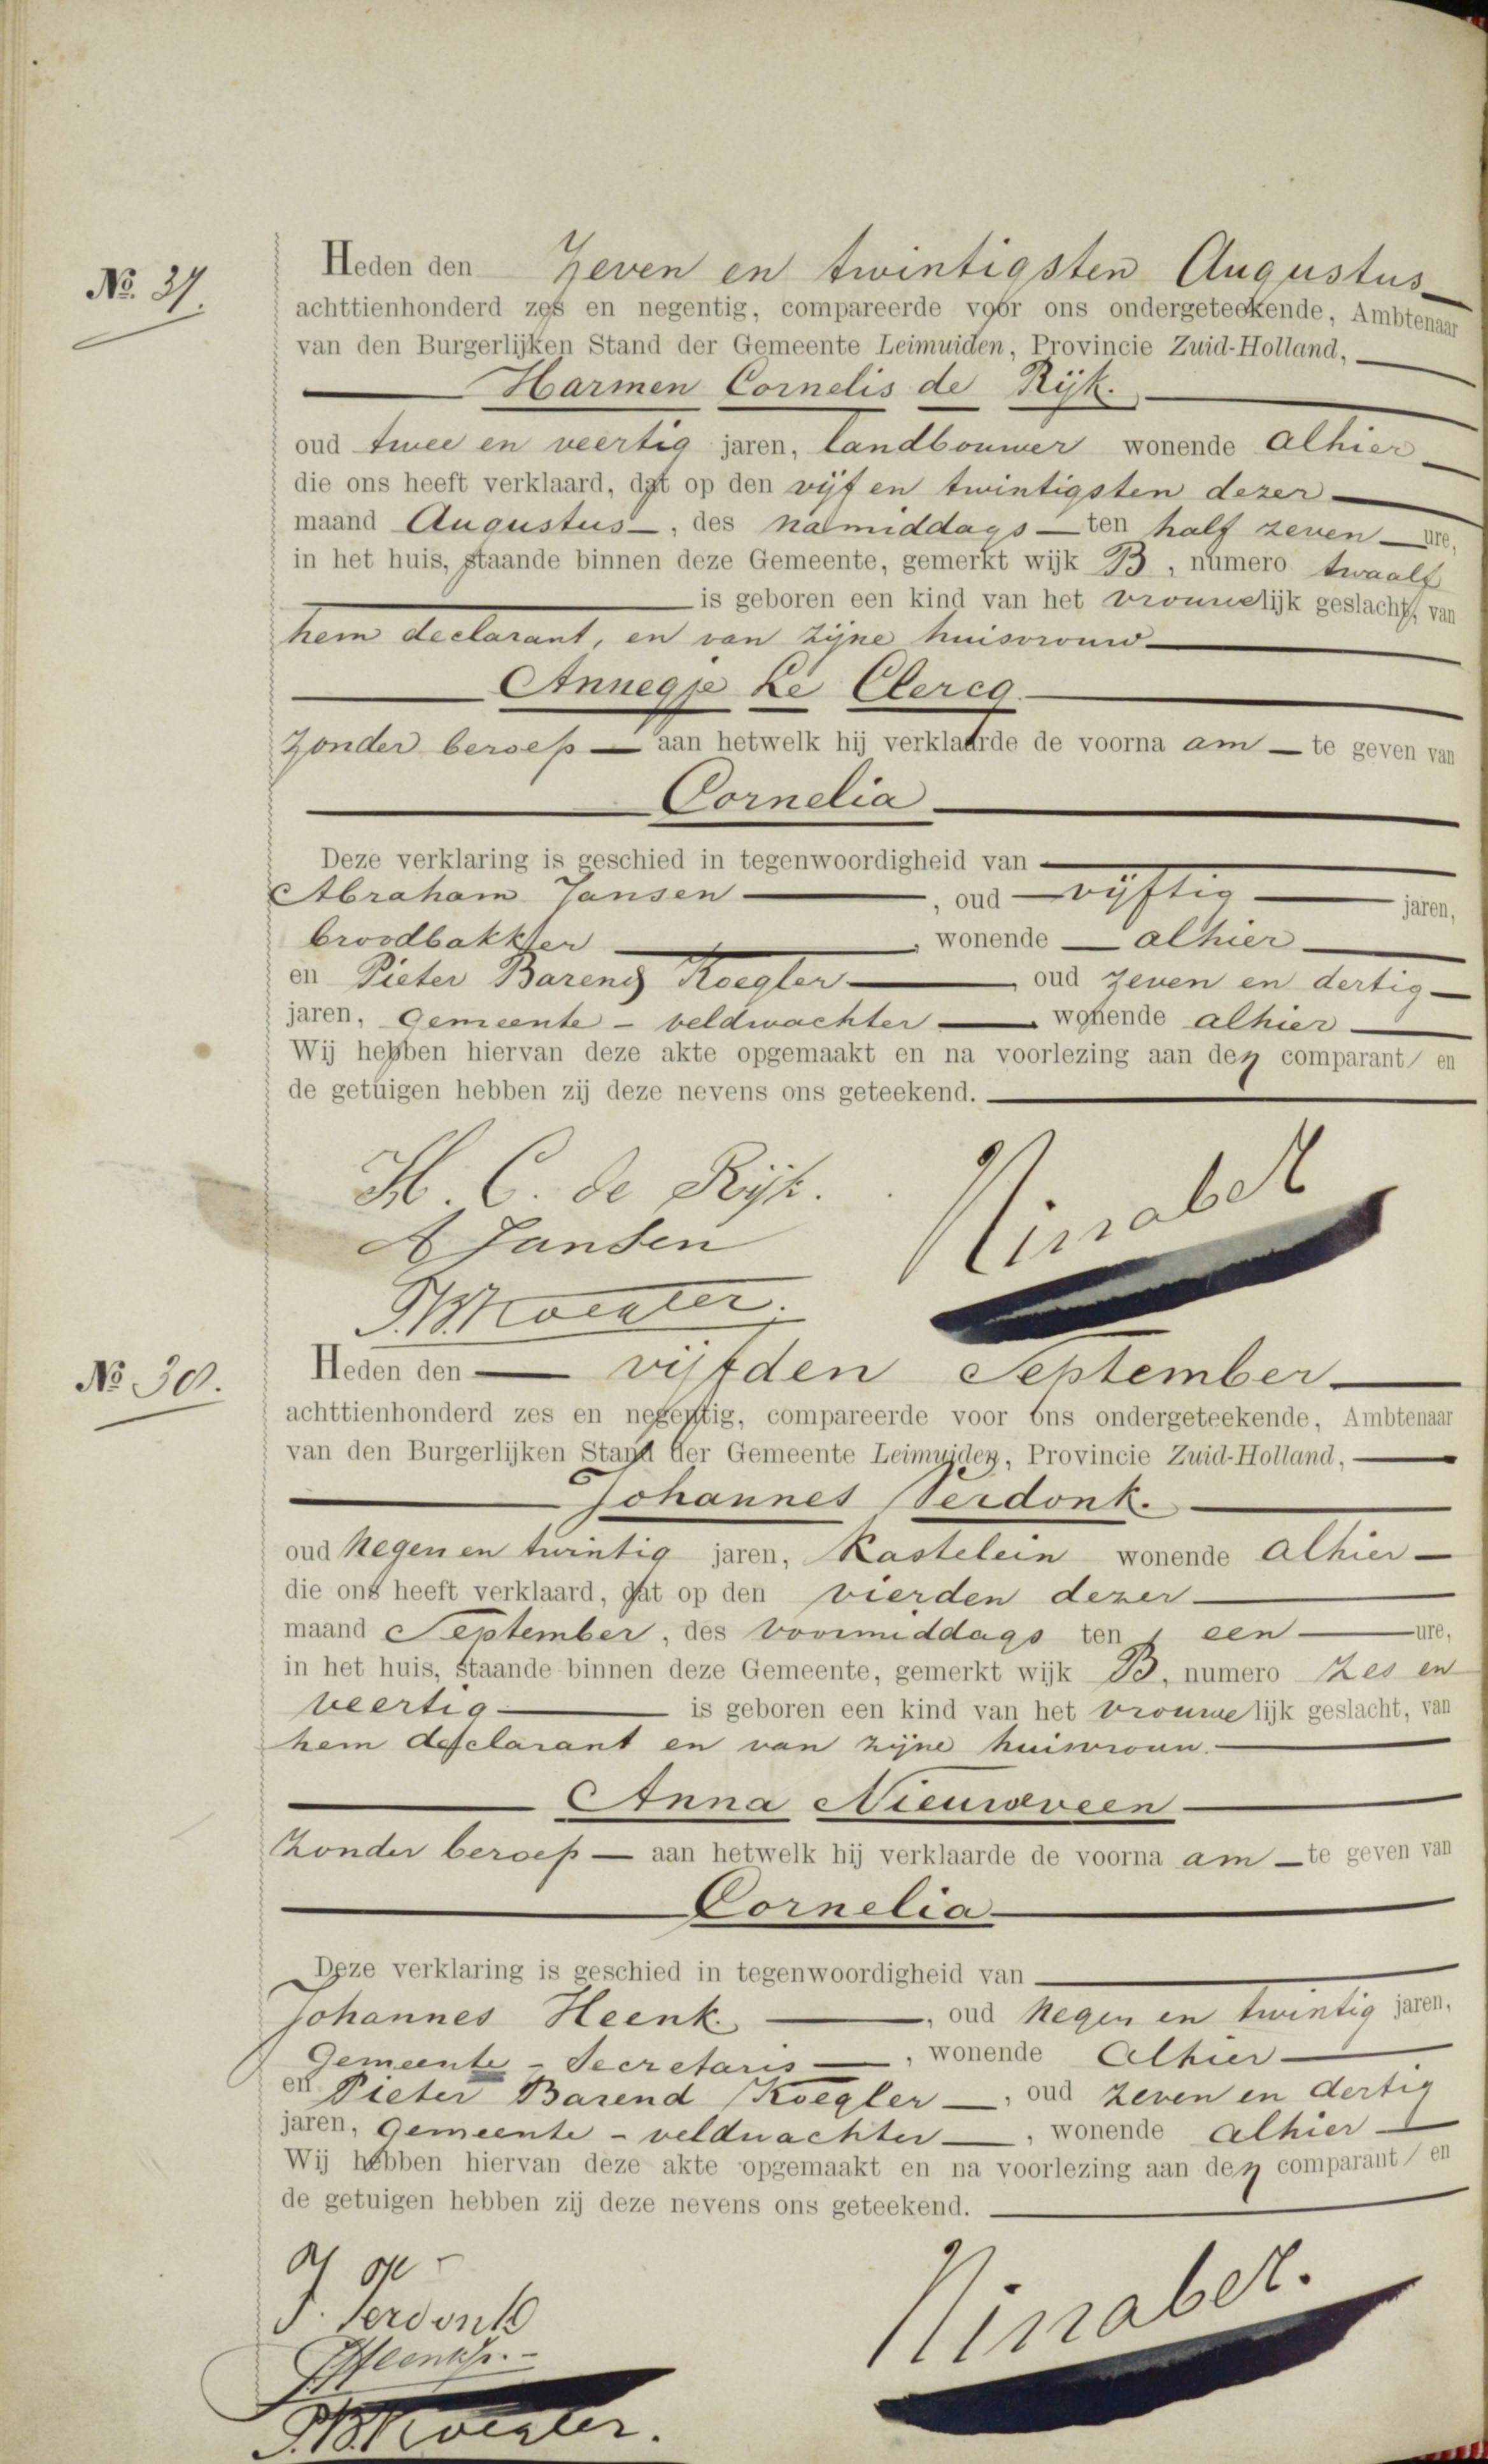 Nº 37.
Heden den Zeven en twintigsten Augustus
achttienhonderd zes en negentig, compareerde voor ons ondergeteekende, Ambtenaar
van den Burgerlijken Stand der Gemeente Leimuiden, Provincie Zuid-Holland,
Harmen Cornelis de Rijk.
oud twee en veertig jaren, landbouwer wonende alhier
die ons heeft verklaard, dat op den vijf en twintigsten dezer
maand Augustus, des namiddags ten half zeven ure,
in het huis, staande binnen deze Gemeente, gemerkt wijk B, numero twaalf
is geboren een kind van het vrouwelijk geslacht, van
hem declarant, en van zijne huisvrouw
Annegje Le Clercq
Zonder beroep aan hetwelk hij verklaarde de voorna am te geven van
Cornelia
Deze verklaring is geschied in tegenwoordigheid van
Abraham Jansen, oud vijftig jaren,
broodbakker, wonende alhier
en Pieter Barend Koegler, oud zeven en dertig
jaren, gemeente-veldwachter, wonende alhier
Wij hebben hiervan deze akte opgemaakt en na voorlezing aan den comparant en
de getuigen hebben zij deze nevens ons geteekend.
H. C. de Rijk.
A Jansen
P.B. Koegler.
Ninaber
Nº 38.
Heden den vijfden September
achttienhonderd zes en negentig, compareerde voor ons ondergeteekende, Ambtenaar
van den Burgerlijken Stand der Gemeente Leimuiden, Provincie Zuid-Holland,
Johannes Verdonk.
oud negen en twintig jaren, Kastelein wonende alhier
die ons heeft verklaard, dat op den vierden dezer
maand September, des voormiddags ten een ure,
in het huis, staande binnen deze Gemeente, gemerkt wijk B, numero zes en
veertig is geboren een kind van het vrouwelijk geslacht, van
hem declarant en van zijne huisvrouw
Anna Nieuwveen
Zonder beroep aan hetwelk hij verklaarde de voorna am te geven van
Cornelia
Deze verklaring is geschied in tegenwoordigheid van
Johannes Heenk, oud negen en twintig jaren,
Gemeente-Secretaris, wonende alhier
en Pieter Barend Koegler, oud zeven en dertig
jaren, gemeente-veldwachter, wonende alhier
Wij hebben hiervan deze akte opgemaakt en na voorlezing aan den comparant en
de getuigen hebben zij deze nevens ons geteekend.
J. Verdonk
P.B. Koegler.
Ninaber.